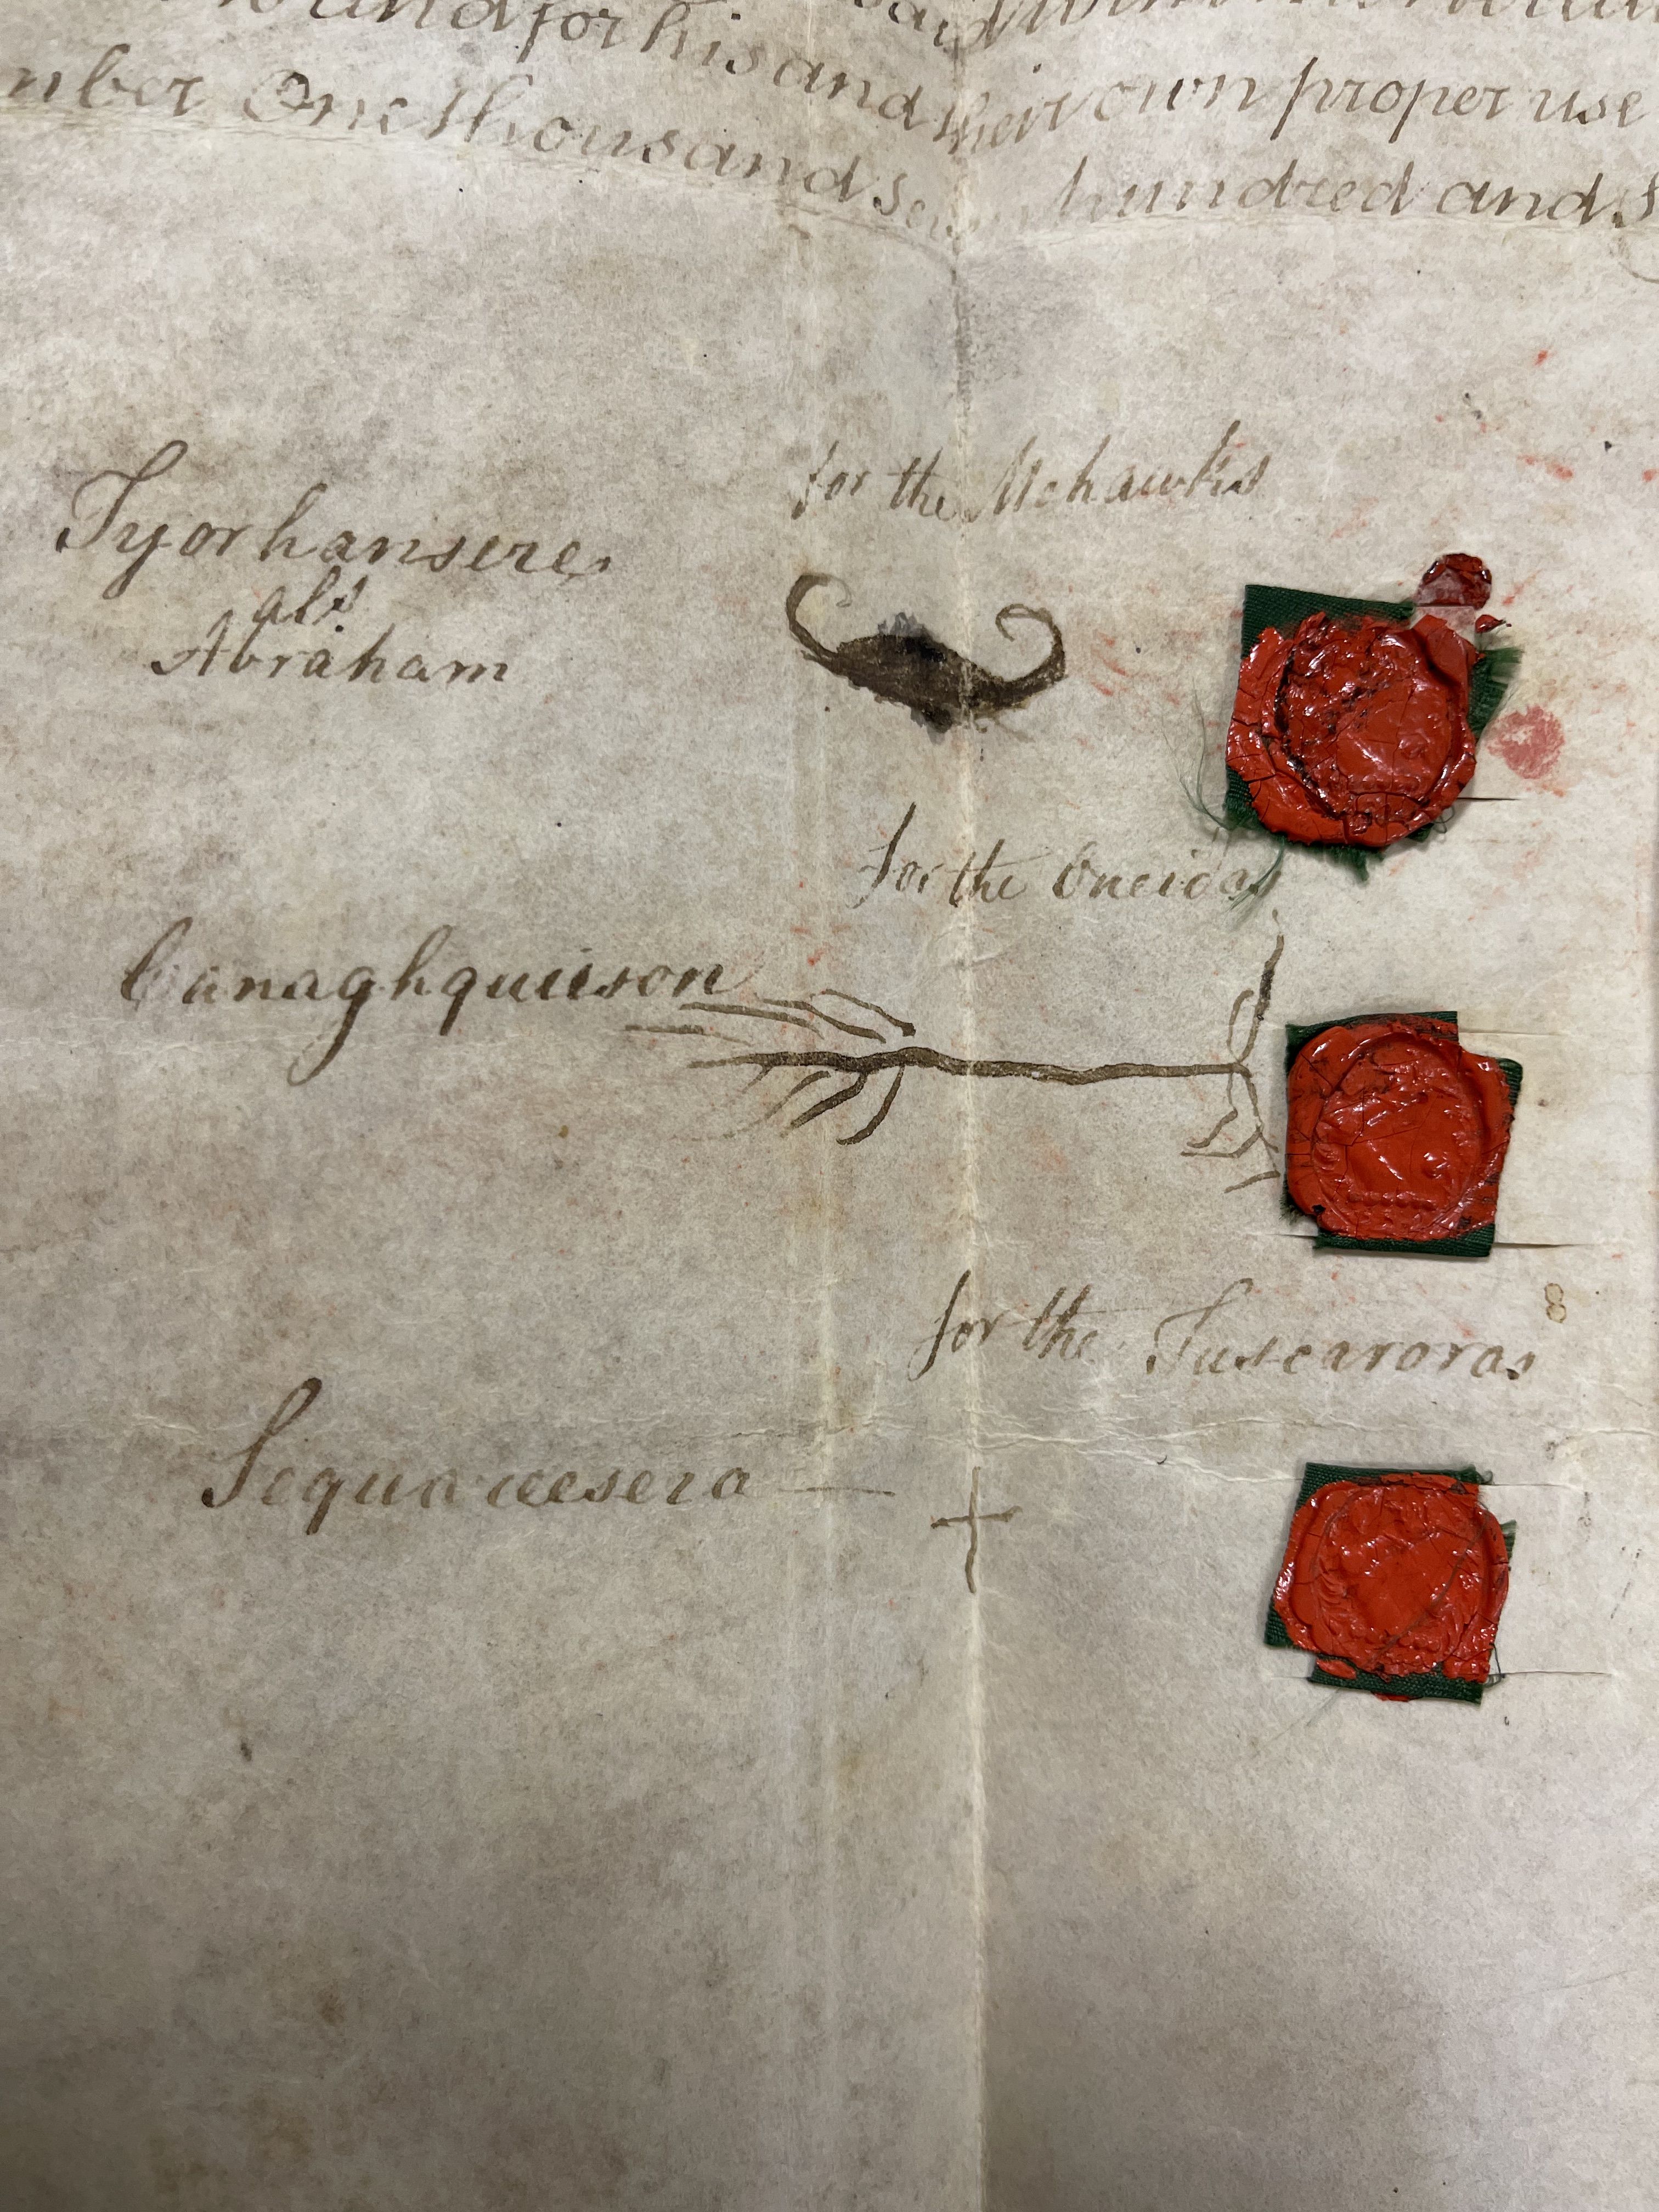 and for his and their own proper use
nber One thousand seven hundred and s
for the Mohawks
Tyorhansere
als.
Abraham
for the Oneidas
Canaghquieson
for the Tuscaroras
Sequareesera